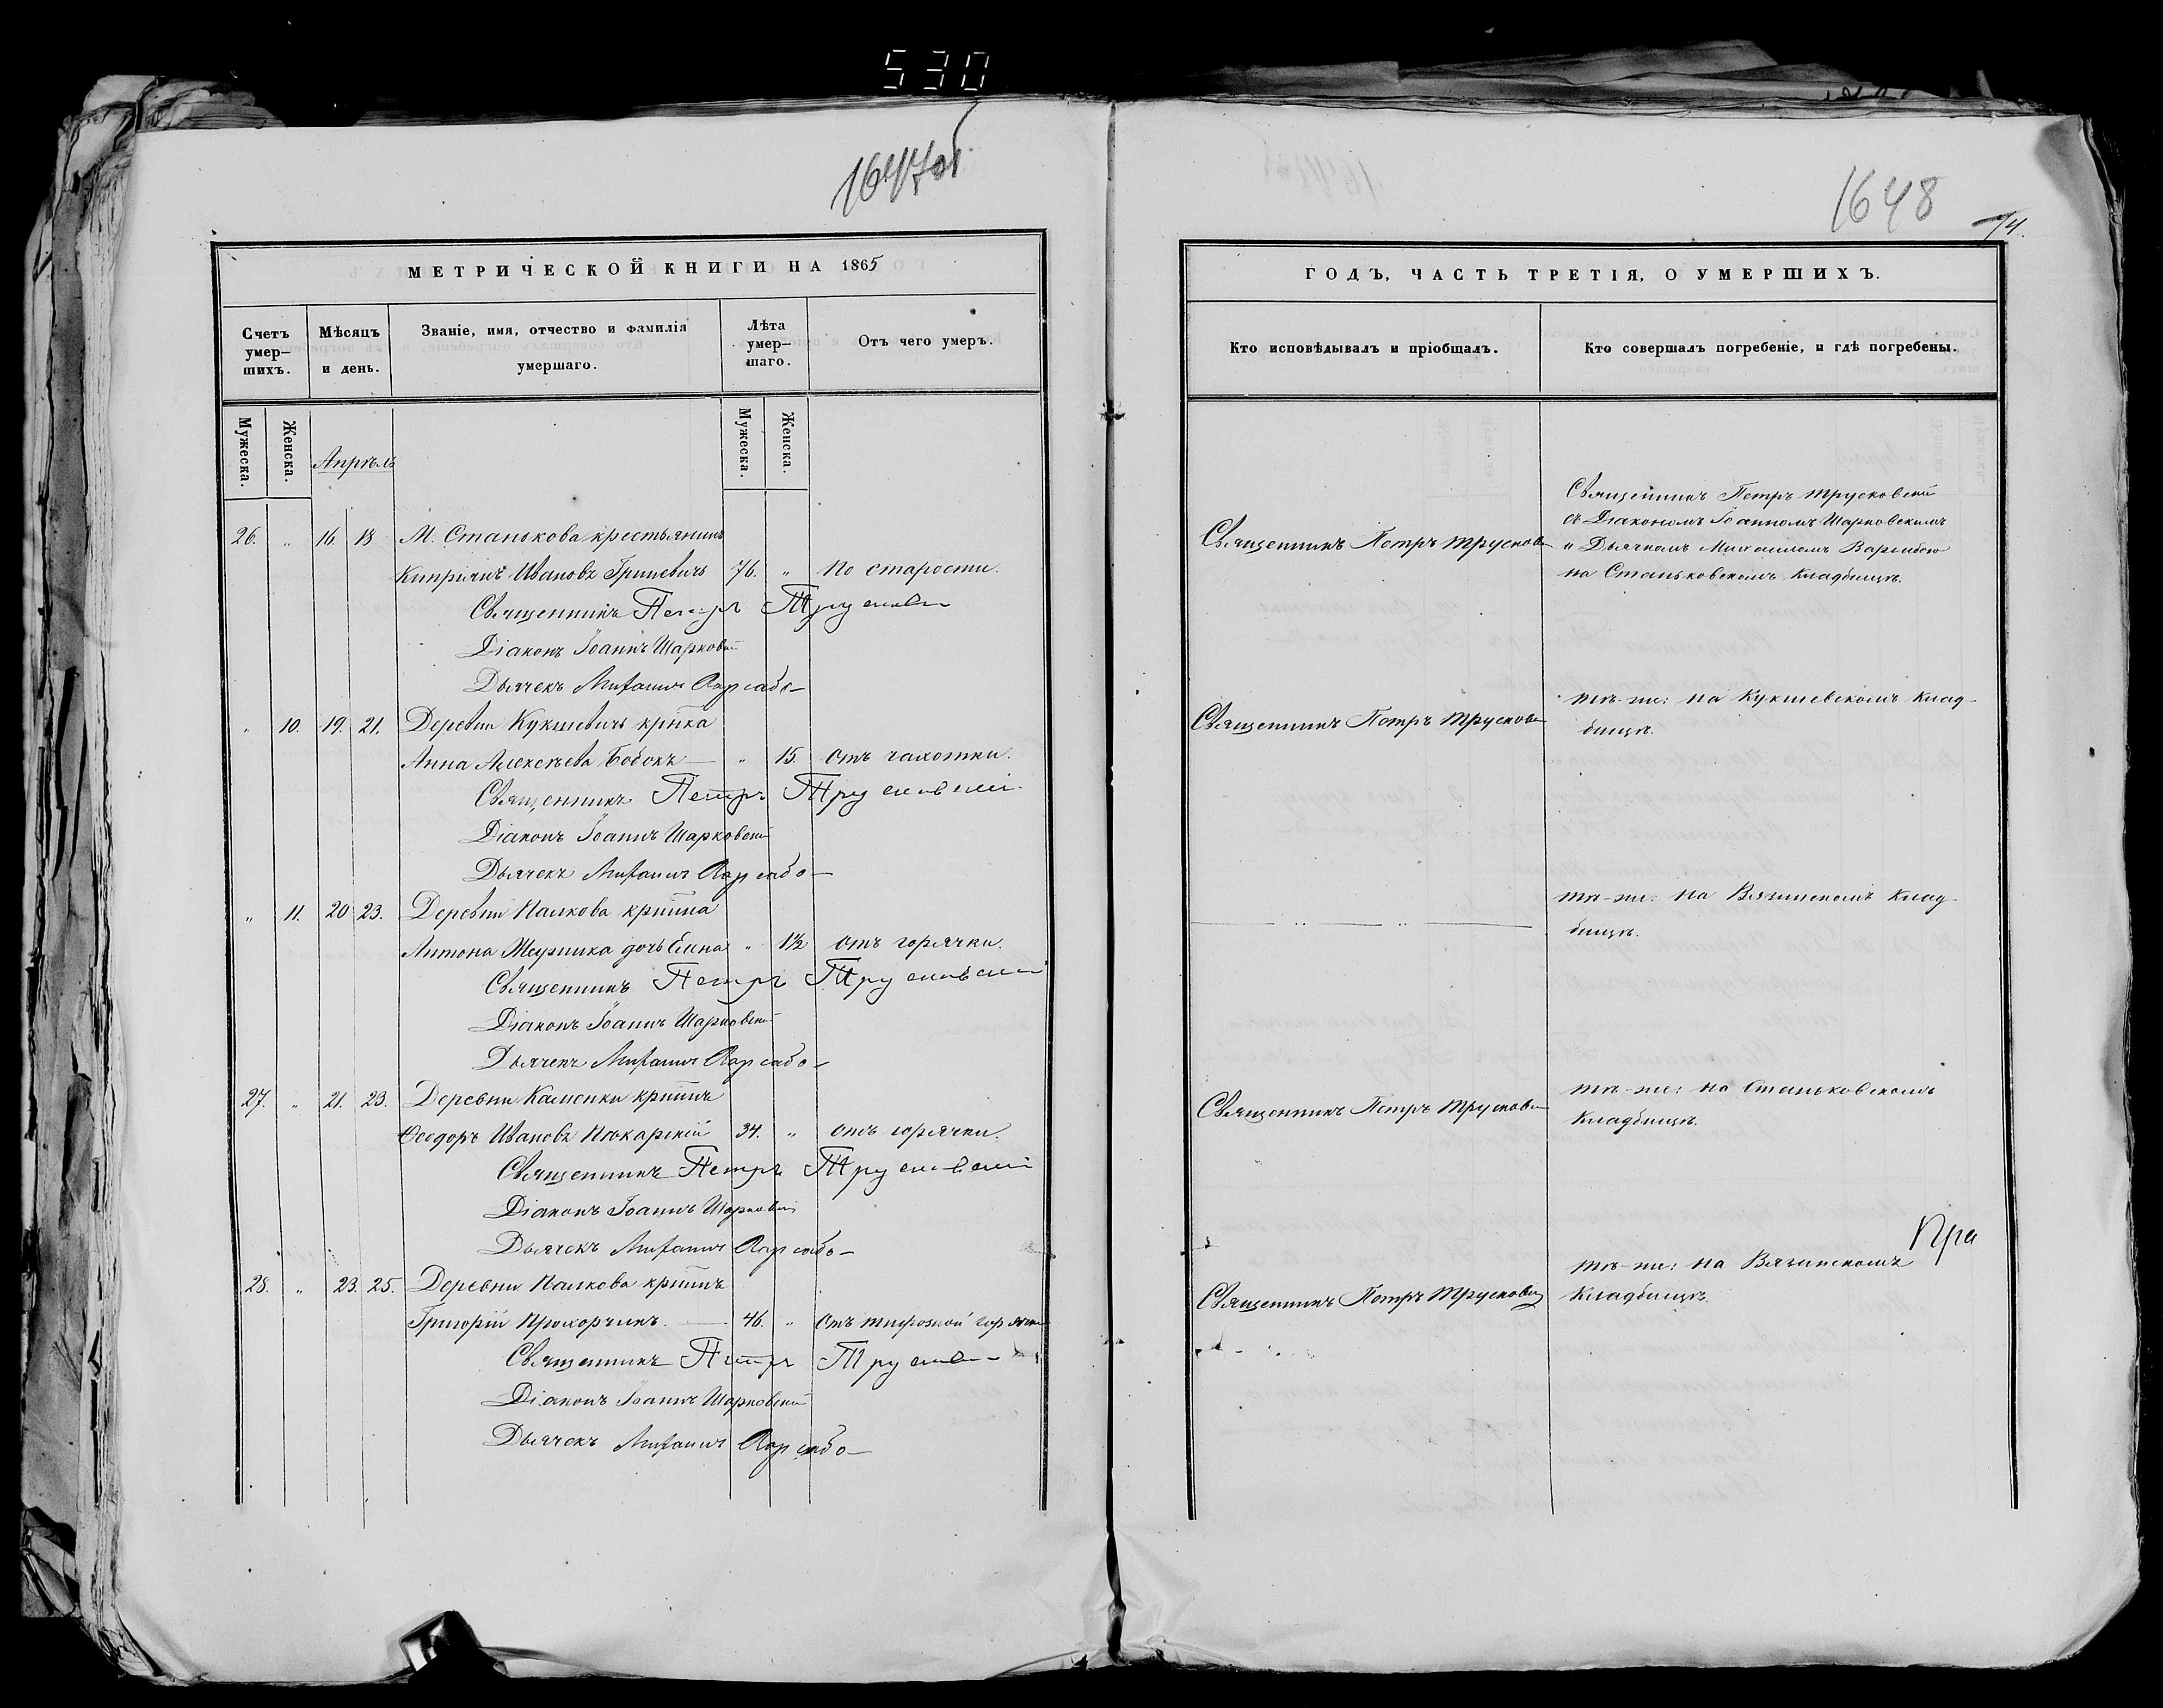 530
1647об
МЕТРИЧЕСКОЙ КНИГИ НА 1865
Счетъ умер-шихъ.
Мѣсяцъ и день.
Званіе, имя, отчество и фамилія умершаго.
Лѣта умер-шаго.
Отъ чего умеръ.
Мужеска.
Женска.
Мужеска.
Женска.
Апрѣль
26. „ 16. 18 М. Станькова крестьянинъ
Ивановъ Гриневичъ 76. „ По старости.
Священникъ Петръ Трусковскій
Діаконъ Іоаннъ Шарковскій
Дьячекъ Михаилъ
„ 10. 19. 21. Деревни Кукшевичъ крѣстка
Анна Алексѣева Бобокъ — „ 15. отъ чахотки.
Священникъ Петръ Трусковскій
Діаконъ Іоаннъ Шарковскій
Дьячекъ Михаилъ
„ 11. 20 23. Деревни Палкова крѣстнина
Антона дочь Елена „ 1½ отъ горячки.
Священникъ Петръ Трусковскій
Діаконъ Іоаннъ Шарковскій
Дьячекъ Михаилъ
27. „ 21. 23. Деревни Каменки крѣстнинъ
Ѳеодоръ Ивановъ Пѣкарскій 34. „ отъ горячки.
Священникъ Петръ Трусковскій
Діаконъ Іоаннъ Шарковскій
Дьячекъ Михаилъ
28. „ 23. 25. Деревни Палкова крѣстнинъ
Григорій Прохорчикъ. — 46. „ Отъ тифозной горячки
Священникъ Петръ Трусковскій
Діаконъ Іоаннъ Шарковскій
Дьячекъ Михаилъ
1648
74.
ГОДЪ, ЧАСТЬ ТРЕТІЯ, О УМЕРШИХЪ.
Кто исповѣдывалъ и пріобщалъ.
Кто совершалъ погребеніе, и гдѣ погребены.
Священникъ Петръ Трусковскій
Священникъ Петръ Трусковскій
съ Діакономъ Іоанномъ Шарковскимъ
и Дьячкомъ Михаиломъ
на Станьковскомъ кладбищѣ.
Священникъ Петръ Трусковскій
тѣ-же: на Кукшевскомъ клад-
бищѣ.
— „ — „ —
тѣ-же: на Вязинскомъ клад-
бищѣ.
Священникъ Петръ Трусковскій
тѣ-же: на Станьковскомъ
кладбищѣ.
Священникъ Петръ Трусковскій
тѣ-же: на Вязинскомъ
кладбищѣ.
Пра